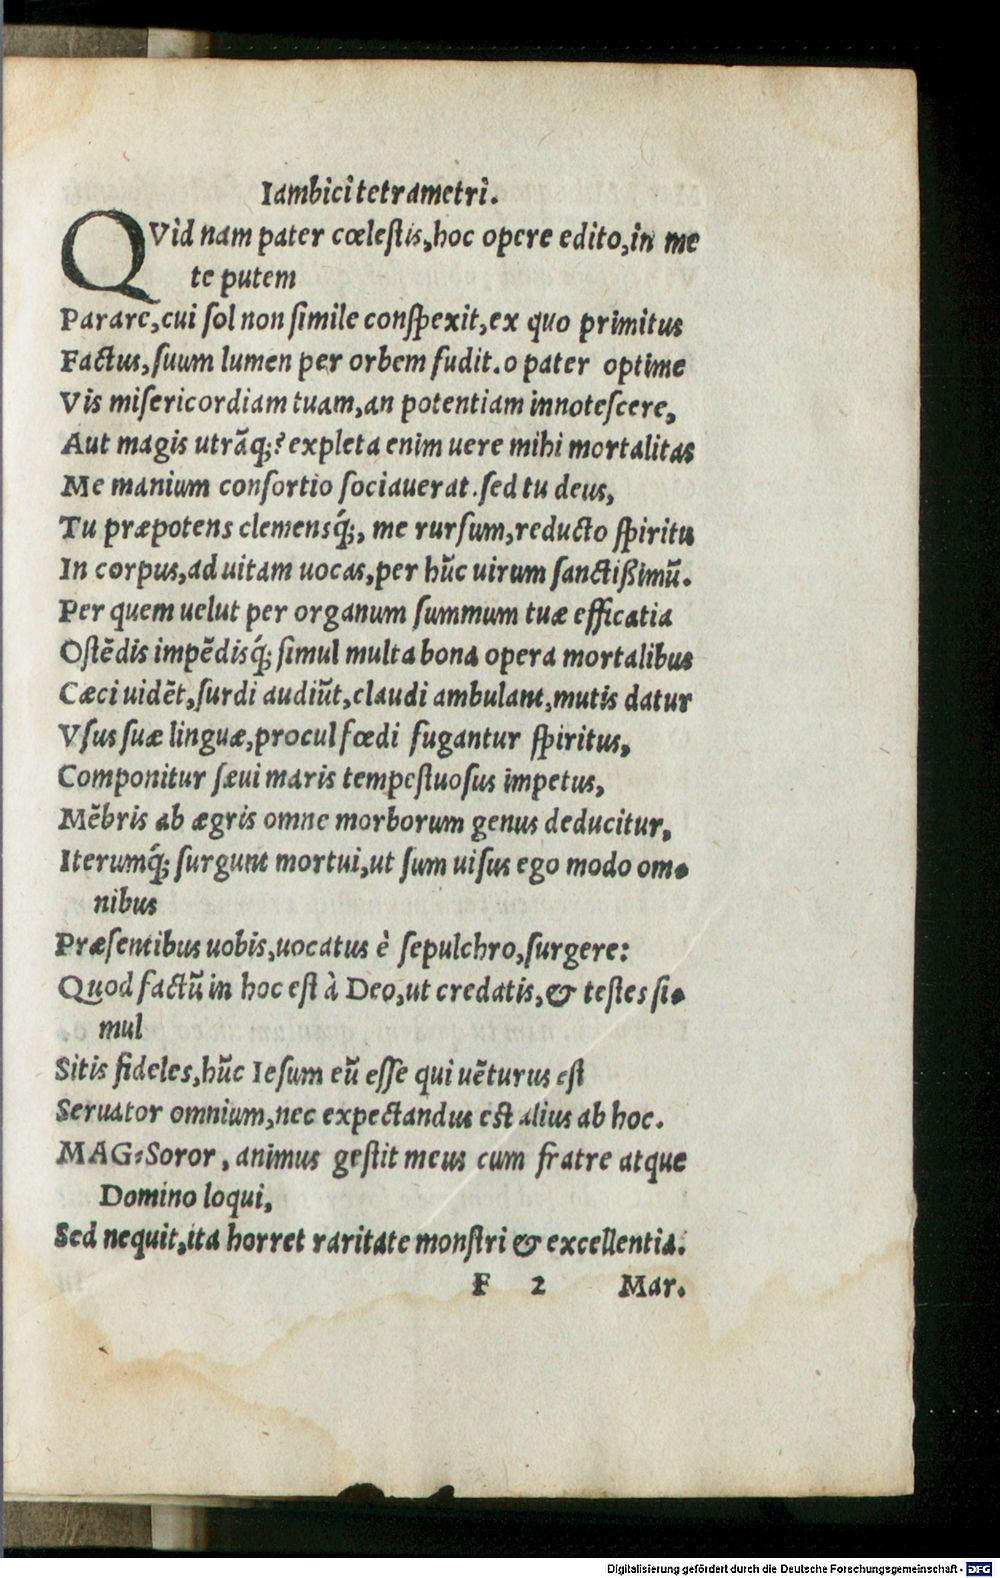 Iambici tetrametri.
QVid nam pater cœlestis, hoc opere edito, in me
te putem
Parare, cui sol non simile conspexit, ex quo primitus
Factus, suum lumen per orbem fudit. o pater optime
Vis misericordiam tuam, an potentiam innotescere,
Aut magis utrãq;? expleta enim uere mihi mortalitas
Me manium consortio sociauerat. sed tu deus,
Tu præpotens clemensq́;, me rursum, reducto spiritu
In corpus, ad uitam uocas, per hũc uirum sanctißimũ.
Per quem uelut per organum summum tuæ efficatia
Ostẽdis impẽdisq́; simul multa bona opera mortalibus
Cæci uidẽt, surdi audiũt, claudi ambulant, mutis datur
Vsus suæ linguæ, procul fœdi fugantur spiritus,
Componitur sæui maris tempestuosus impetus,
Mẽbris ab ægris omne morborum genus deducitur,
Iterumq́; surgunt mortui, ut sum uisus ego modo om-
nibus
Præsentibus uobis, uocatus è sepulchro, surgere:
Quod factũ in hoc est à Deo, ut credatis, & testes si-
mul
Sitis fideles, hũc Iesum eũ esse qui uẽturus est
Seruator omnium, nec expectandus est alius ab hoc.
MAG: Soror, animus gestit meus cum fratre atque
Domino loqui,
Sed nequit, ita horret raritate monstri & excellentia.
F 2 Mar.
Digitalisierung gefördert durch die Deutsche Forschungsgemeinschaft - DFG